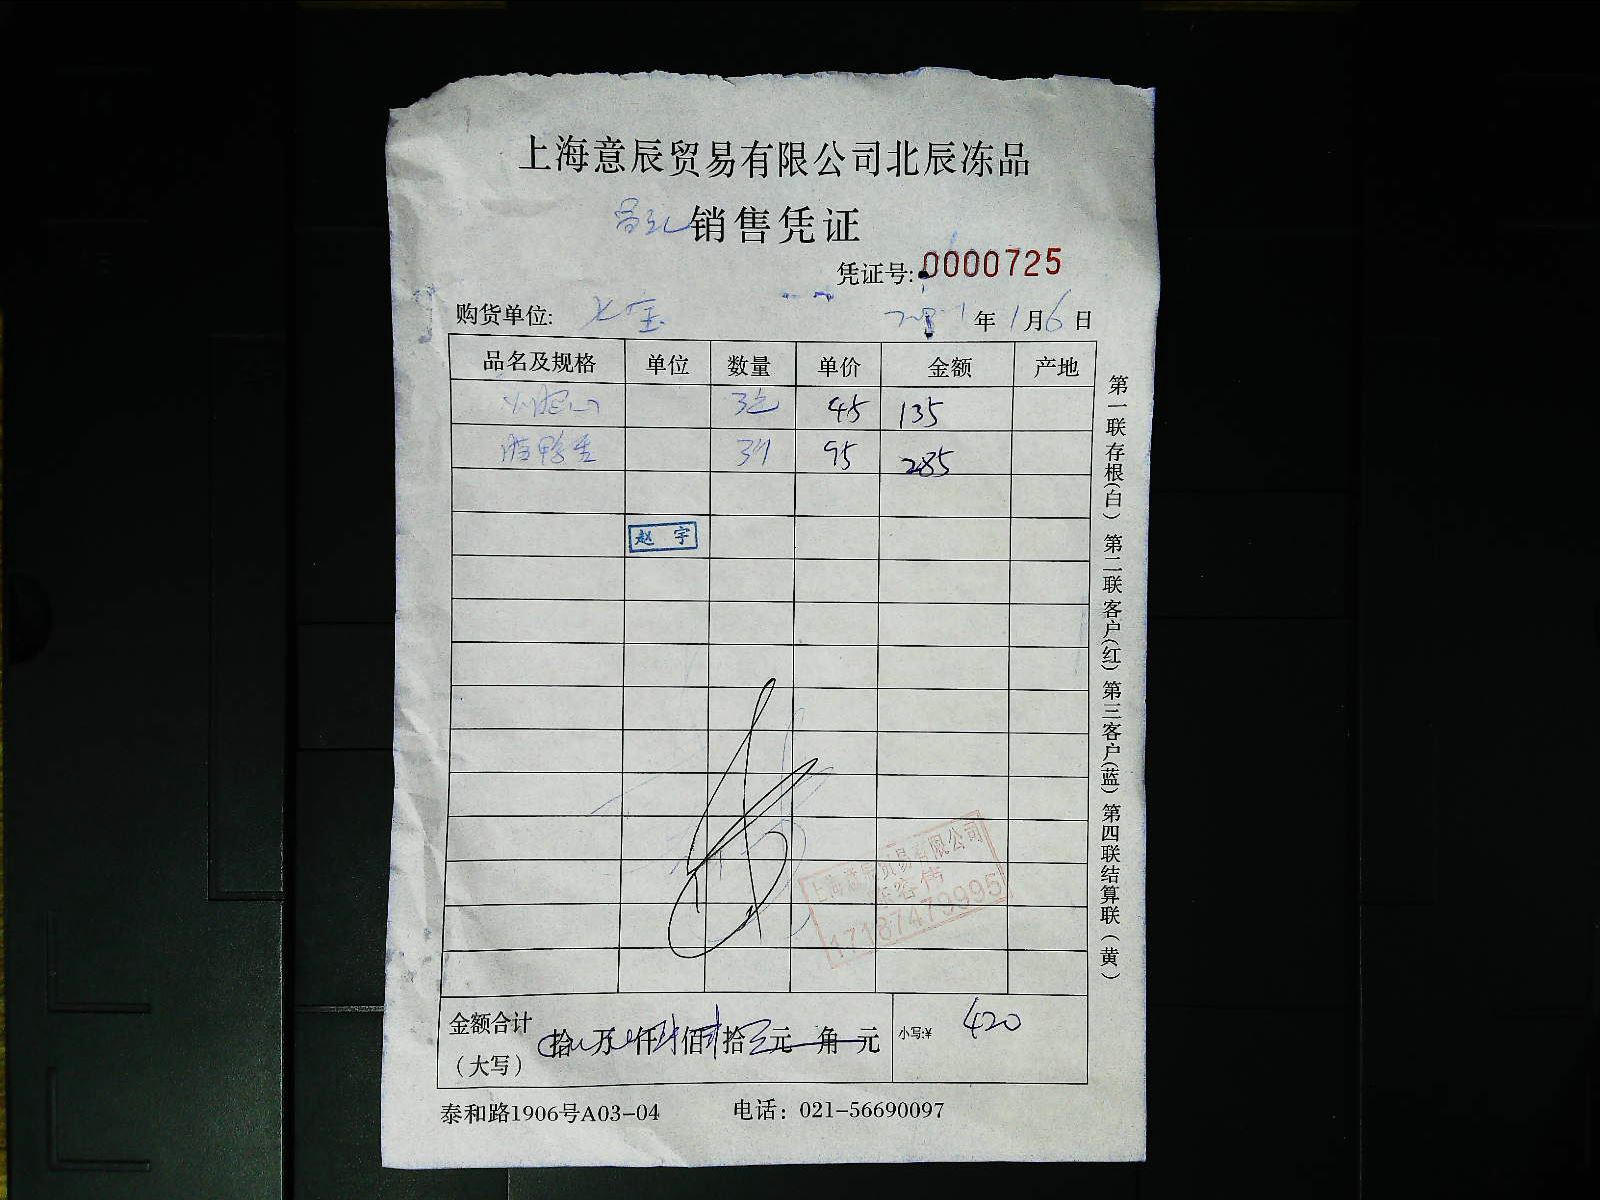 上海意辰贸易有限公司北辰冻品
销售凭证
凭证号: 0000725
购货单位: 七宝 年1月6日
品名及规格 单位 数量 单价 金额 产地
3包 45 135
腊鸭 3 95 285
赵 宇
上海意辰贸易有限公司
金额合计
(大写)
拾 万 仟 佰 拾 元 角 元
小写:¥ 420
泰和路1906号A03-04 电话: 021-56690097
第一联存根(白) 第二联客户(红) 第三客户(蓝) 第四联结算联(黄)